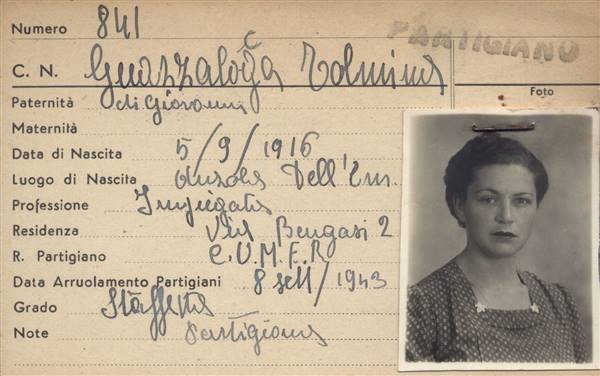 Numero 841
PARTIGIANO
C. N. Guazzaloca Tolmina
Foto
Paternità di Giovanni
Maternità
Data di Nascita 5/9/1916
Luogo di Nascita Anzola Dell'Em.
Professione Impiegata
Residenza Via Bengasi 2
R. Partigiano C.U.M.E.R.
Data Arruolamento Partigiani 8 sett/1943
Grado Staffetta
Note Partigiana